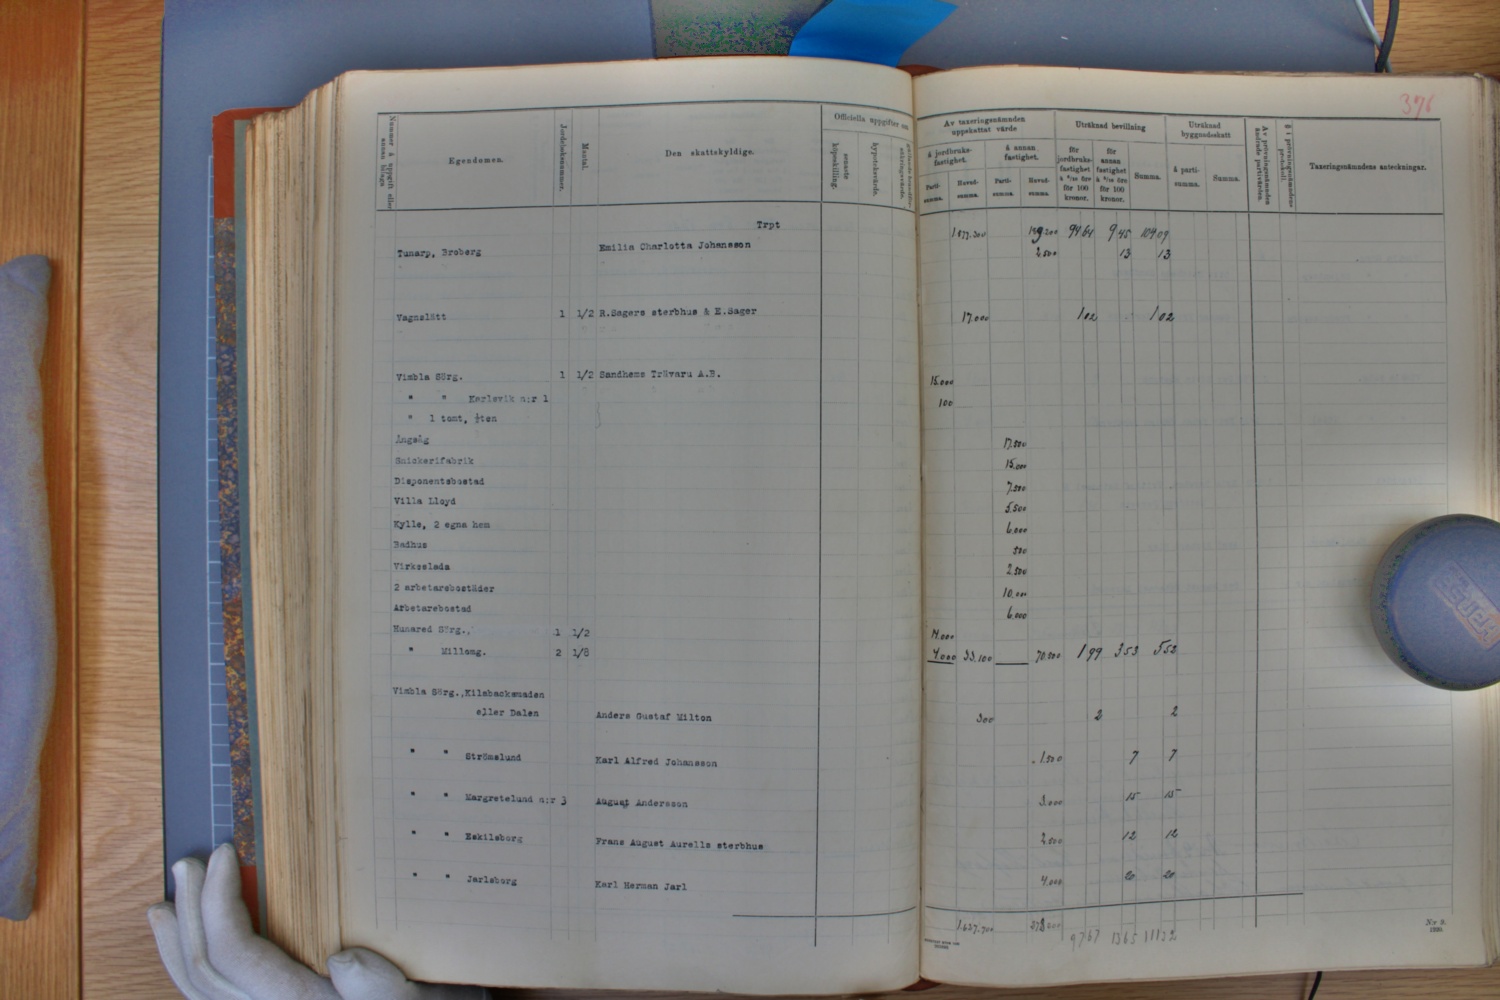 376
Nummer å uppgift eller annan bilaga
Egendomen.
Jordeboksnummer.
Mantal.
Den skattskyldige.
Officiella uppgifter om
senaste köpeskilling.
hypoteksvärde.
Av taxeringsnämnden uppskattat värde
å jordbruksfastighet.
å annan fastighet.
Partisumma.
Huvudsumma.
Partisumma.
Huvudsumma.
Uträknad bevillning
för jordbruksfastighet å 6/10 öre för 100 kronor.
för annan fastighet å 5/10 öre för 100 kronor.
Summa.
Uträknad byggnadsskatt
å partisumma.
Summa.
Av prövningsnämnden ändrade partivärden.
§ i prövningsnämndens protokoll.
Taxeringsnämndens anteckningar.
Trpt
Tunarp, Broberg Emilia Charlotta Johansson 2.500 13 13
Vagnslätt 1 1/2 R.Sagers sterbhus & E.Sager 17.000 1 02 1 02
Vimbla Sörg. 1 1/2 Sandhems Trävaru A.B. 15.000
" " Karlsvik n:r 1 100
" 1 tomt, ½ten
Ångsåg 17.500
Snickerifabrik 15.000
Disponentsbostad 7.500
Villa Lloyd 5.500
Kylle, 2 egna hem 6.000
Badhus 500
Virkeslada 2.500
2 arbetarebostäder 10.000
Arbetarebostad 6.000
Kunared Sörg., 1 1/2 14.000
" Millomg. 2 1/8 4.000 33.100 70.500 1 99 3 53 5 52
Vimbla Sörg.,Kilsbacksmaden
eller Dalen Anders Gustaf Milton 300 2 2
" " Strömslund Karl Alfred Johansson 1.500 7 7
" " Margretelund n:r 3 August Andersson 3.000 15 15
" " Eskilsborg Frans August Aurells sterbhus 2.500 12 12
" " Jarlsborg Karl Herman Jarl 4.000 20 20
97 67 13 65 111 32
Nr 9.